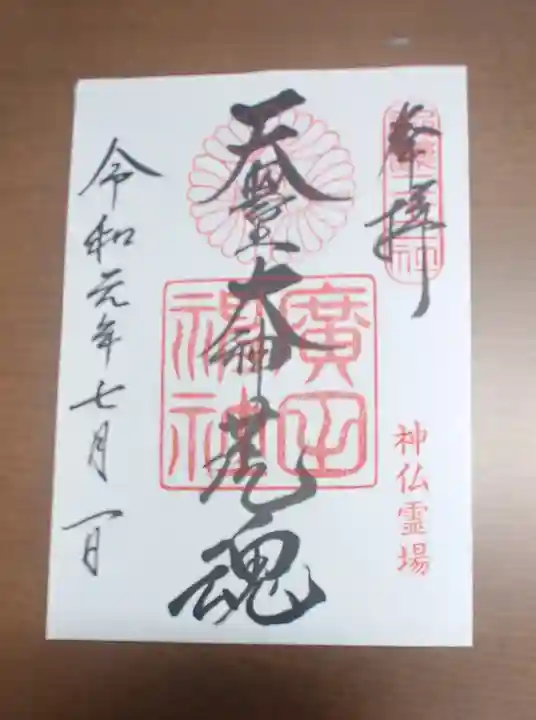 奉拝
神仏霊場
天照大神荒魂
廣田
神社
令和元年七月一日